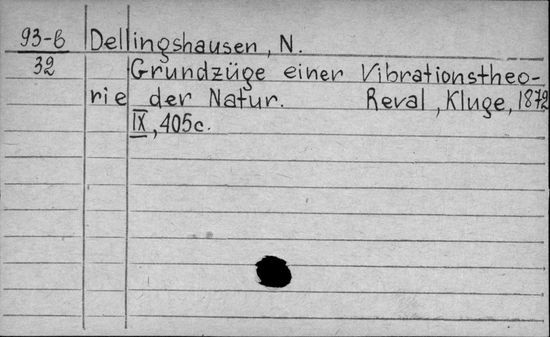 93-6 Dellingshausen, N.
32 Grundzüge einer Vibrationstheo-
rie der Natur. Reval, Kluge, 1872
IX, 405c.